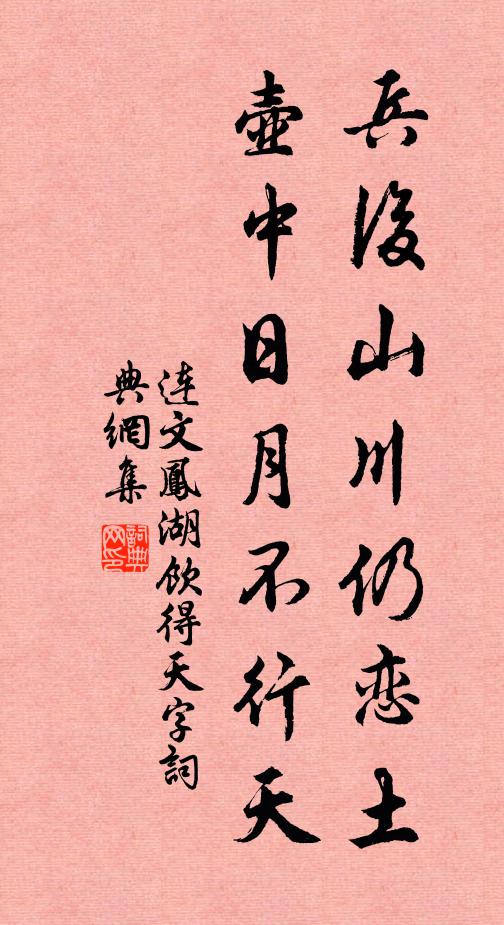 兵後山川仍恋土
壺中日月不行天
連文鳳湖飲得天字詞
典網集
詞典
网印